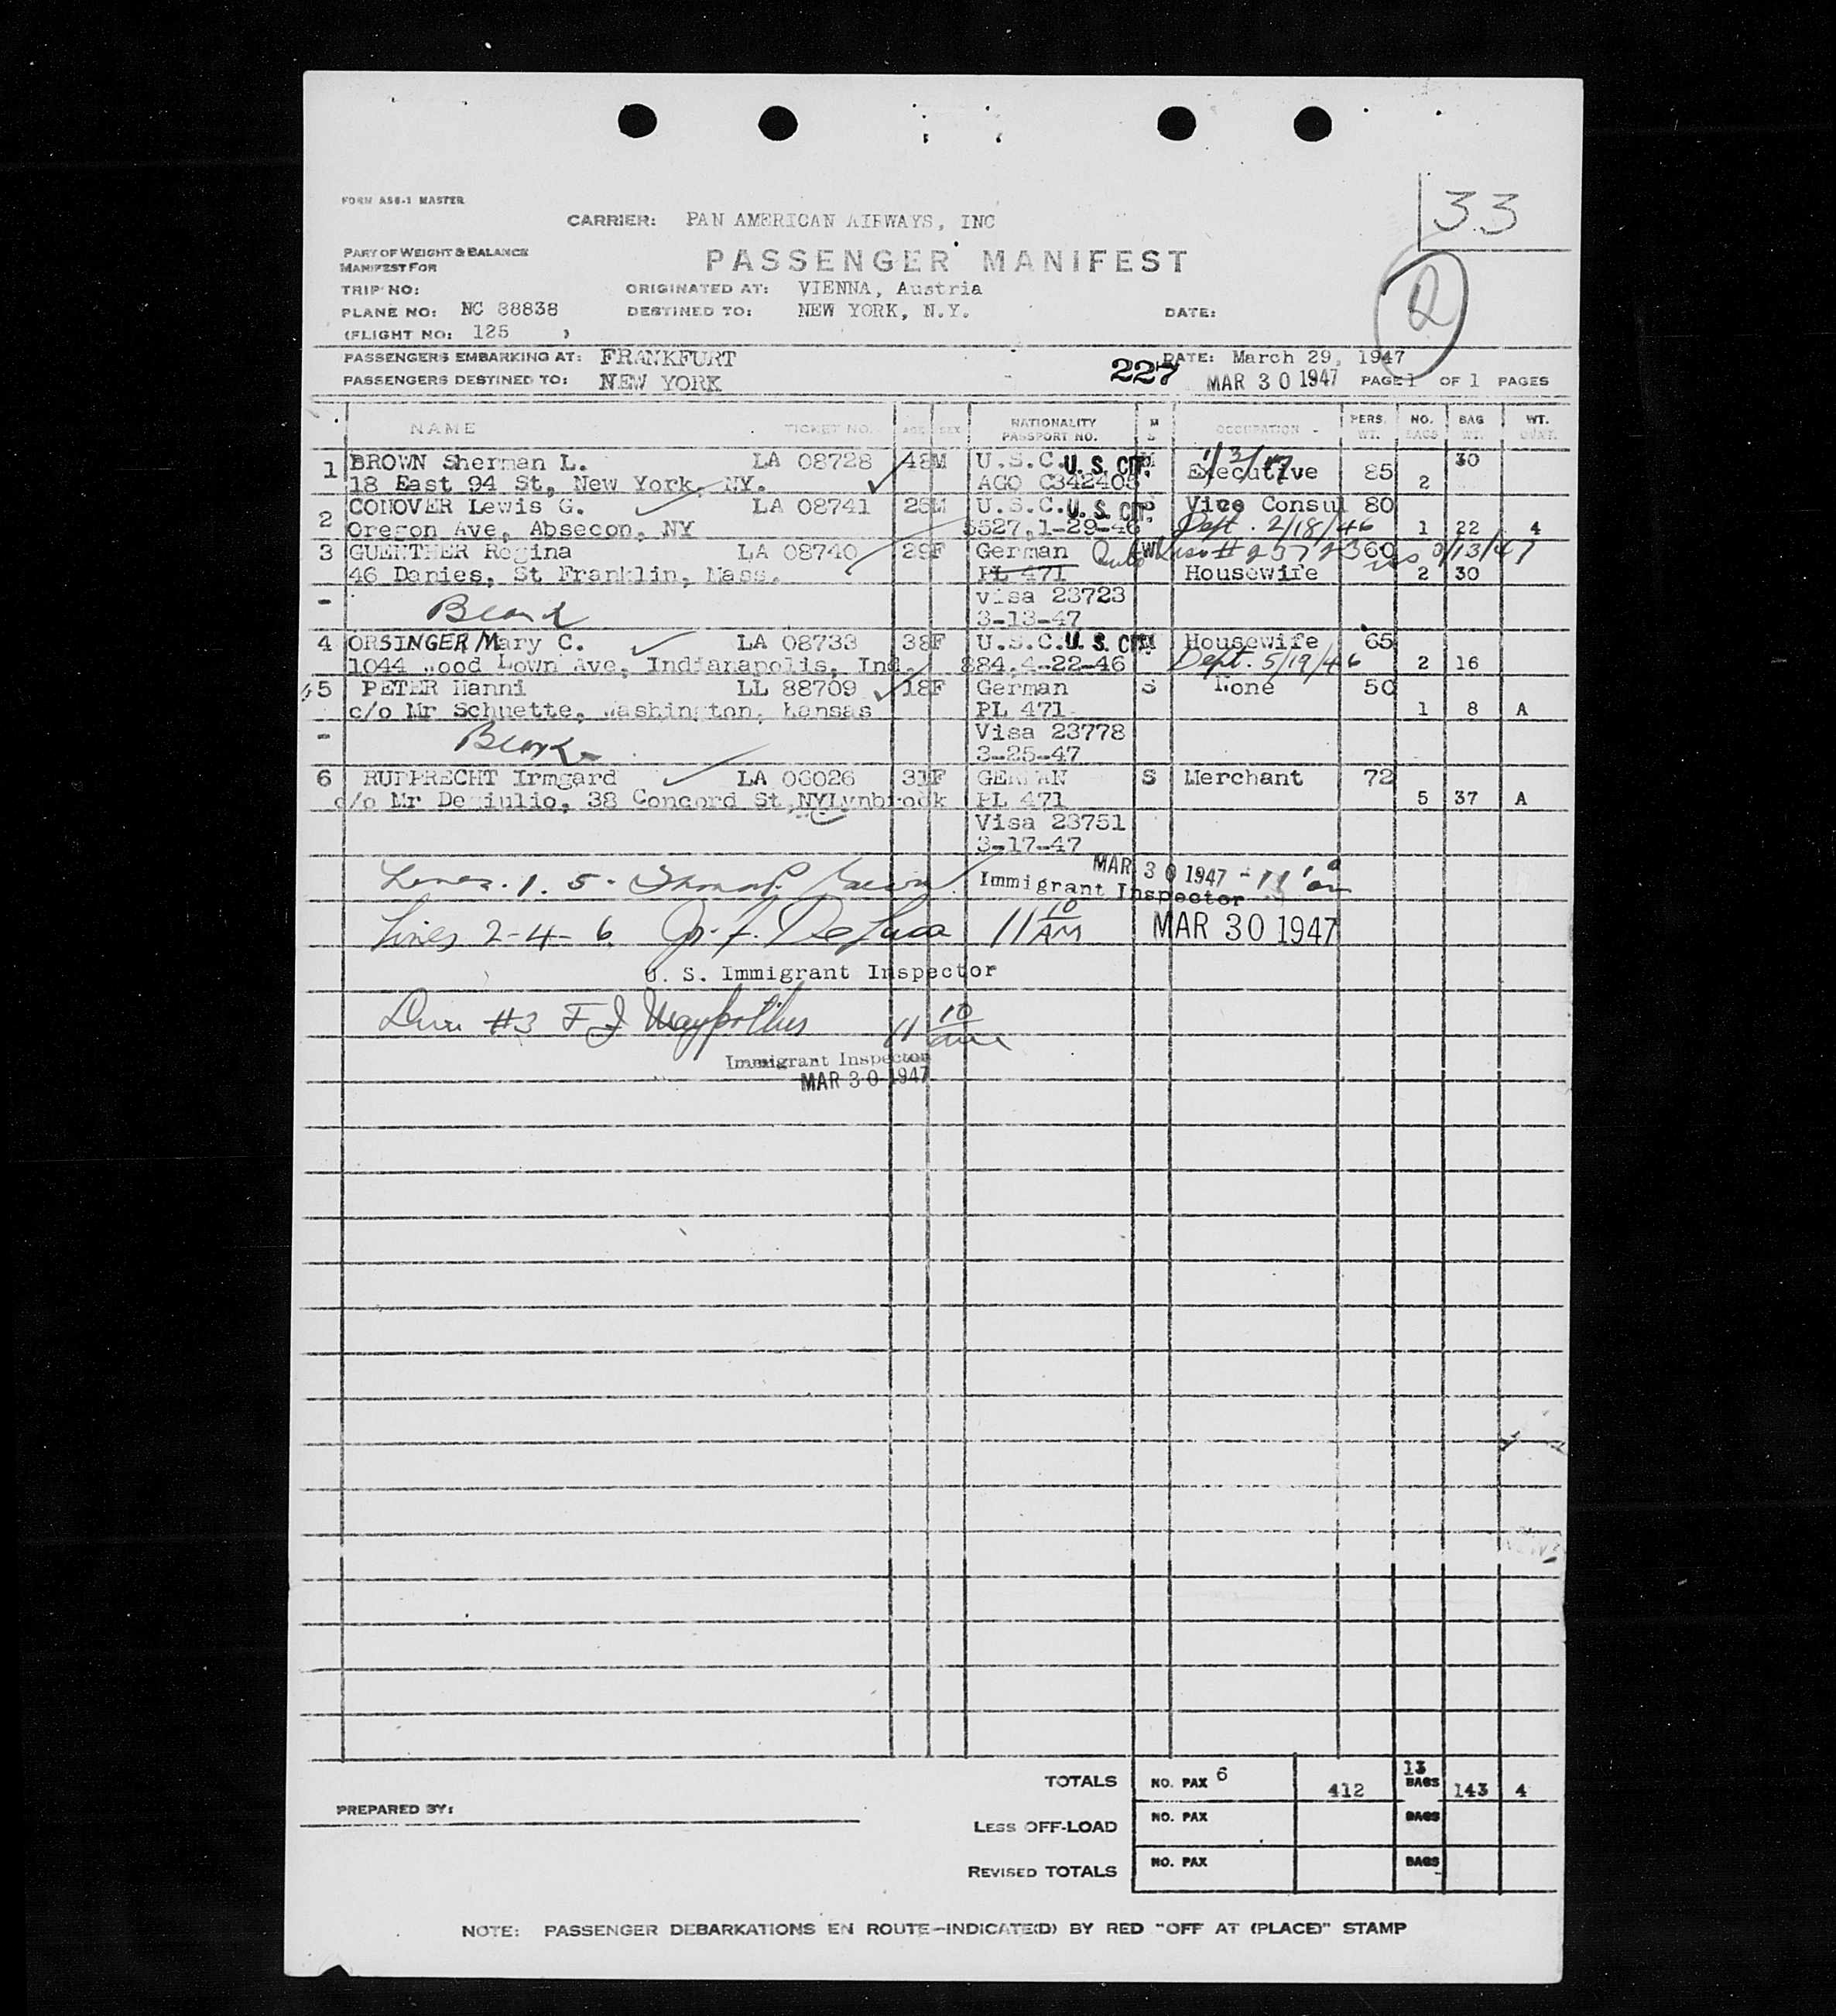 33
FORM AS6-1 MASTER
CARRIER: PAN AMERICAN AIRWAYS, INC
PART OF WEIGHT & BALANCE
MANIFEST FOR
PASSENGER MANIFEST
TRIP NO:
ORIGINATED AT: VIENNA, Austria
PLANE NO: NC 88838
DESTINED TO: NEW YORK, N.Y.
DATE:
(FLIGHT NO: 125 )
PASSENGERS EMBARKING AT: FRANKFURT
227 DATE: March 29, 1947
PASSENGERS DESTINED TO: NEW YORK
MAR 30 1947 PAGE 1 OF 1 PAGES
NAME TICKET NO. AGE SEX NATIONALITY PASSPORT NO. M S OCCUPATION PERS. WT. NO. BAGS BAG WT. WT.
1 BROWN Sherman L. LA 08728 48 M U.S.C. U.S. CIT. M Executive 85 30
18 East 94 St, New York, NY. AGO C342405 2
2 CONOVER Lewis G. LA 08741 25 M U.S.C. U.S. CIT. S Vice Consul 80
Oregon Ave, Absecon, NY 5527,1-29-46 Dept. 2/18/46 1 22 4
3 GUENTHER Regina LA 08740 29 F German W 60
46 Danies, St Franklin, Mass. PL 471 Housewife 2 30
- visa 23723
3-13-47
4 ORSINGER Mary C. LA 08733 38 F U.S.C. U.S. CIT. M Housewife 65
1044 Wood Lown Ave, Indianapolis, Ind. 884,4-22-46 Dept. 5/19/46 2 16
5 PETER Hanni LL 88709 18 F German S None 50
c/o Mr Schuette, Washington, Kansas PL 471 1 8 A
- Visa 23778
3-25-47
6 RUPPRECHT Irmgard LA 06026 31 F GERMAN S Merchant 72
c/o Mr Degiulio, 38 Concord St,NYLynbrook PL 471 5 37 A
Visa 23751
3-17-47
Lines. 1. 5.
MAR 30 1947
Immigrant Inspector
Lines 2-4-6. DeLuca 11 10 AM MAR 30 1947
U. S. Immigrant Inspector
#3 F J 11 10
Immigrant Inspector
MAR 30 1947
TOTALS NO. PAX 6 412 13 BAGS 143 4
PREPARED BY:
LESS OFF-LOAD NO. PAX BAGS
REVISED TOTALS NO. PAX BAGS
NOTE: PASSENGER DEBARKATIONS EN ROUTE—INDICATE(D) BY RED "OFF AT (PLACE)" STAMP